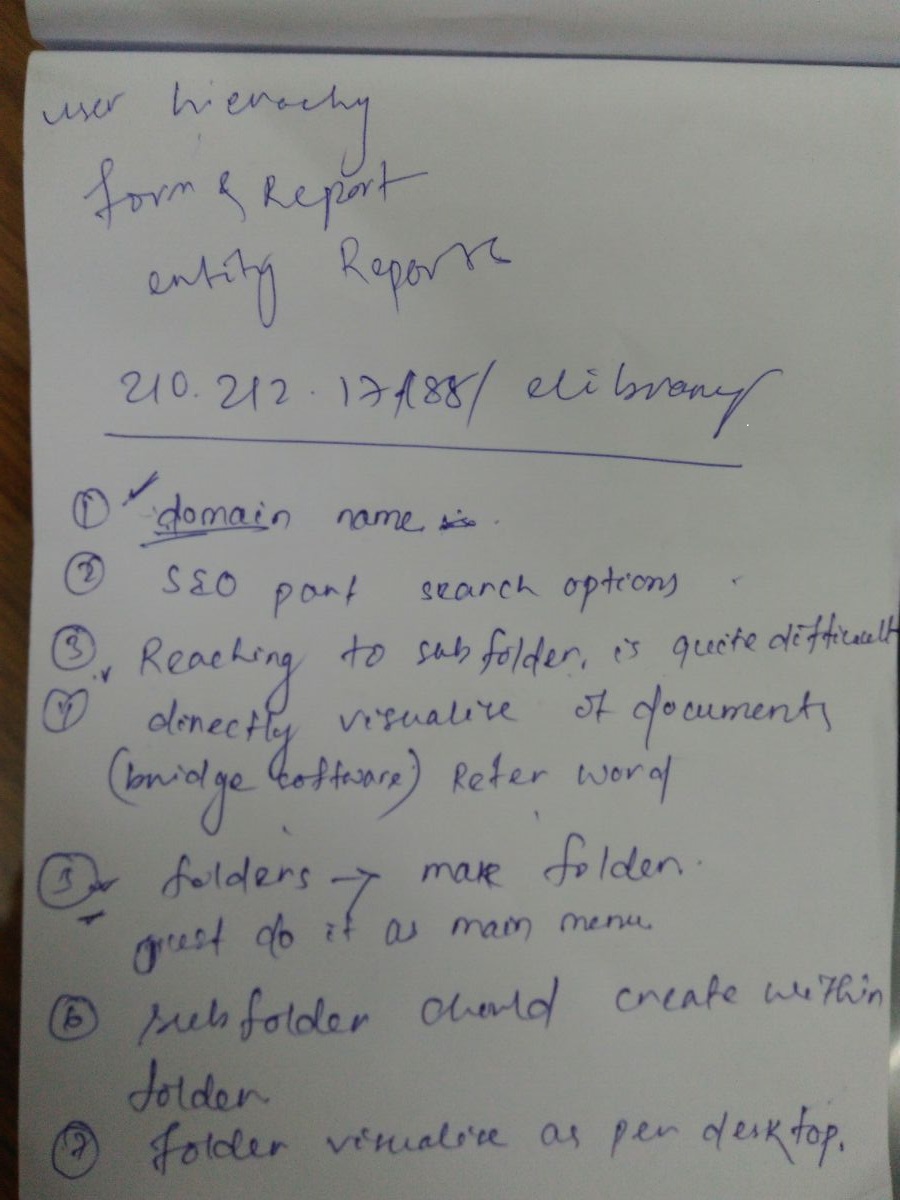 user hierachy
form & Report
entity Reports
210.212.17.188/ elibrary
① domain name
② SEO part search options
③ Reaching to subfolder, is quite difficult
④ directly visualize of documents
(bridge software) Refer word
⑤ folders → make folder.
just do it as main menu
⑥ subfolder should create within
folder
⑦ folder visualize as per desktop.